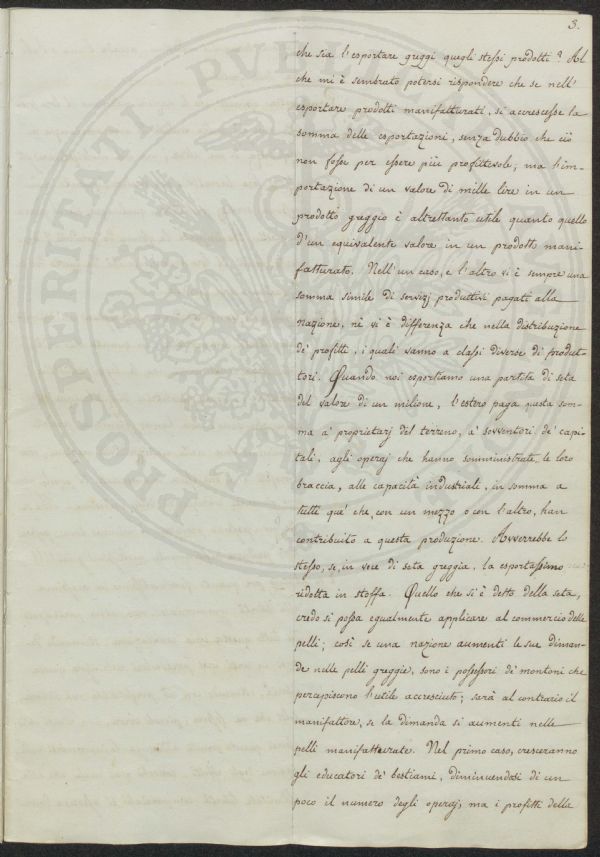 3.
che sia l'esportare greggi quegli stessi prodotti? Al
che mi è sembrato potersi rispondere che se nell'
esportare prodotti manifatturati, si accrescesse la
somma delle esportazioni, senza dubbio che ciò
non fosse per essere più profittevole; ma l'im-
portazione di un valore di mille lire in un
prodotto greggio è altrettanto utile quanto quello
d'un equivalente valore in un prodotto mani-
fatturato. Nell'un caso, e l'altro vi è sempre una
somma simile di servizj produttivi pagati alla
nazione, nè vi è differenza che nella distribuzione
de' profitti, i quali vanno a classi diverse di produt-
tori. Quando noi esportiamo una partita di seta
del valore di un milione, l'estero paga questa som-
ma a' proprietarj del terreno, a' sovventori de' capi-
tali, agli operaj che hanno somministrate le loro
braccia, alle capacità industriali, in somma a
tutti que' che con un mezzo o con l'altro, han
contribuito a questa produzione. Avverrebbe lo
stesso, se, in vece di seta greggia, la esportassimo
ridotta in stoffa. Quello che si è detto della seta,
credo si possa egualmente applicare al commercio delle
pelli; così se una nazione aumenti le sue diman-
de nelle pelli greggie, sono i possessori de' montoni che
percepiscono l'utile accresciuto; sarà al contrario il
manifattore, se la dimanda si aumenti nelle
pelli manifatturate. Nel primo caso, cresceranno
gli educatori de' bestiami, diminuendosi di un
poco il numero degli operaj, ma i profitti della
PROSPERITATI PVBL